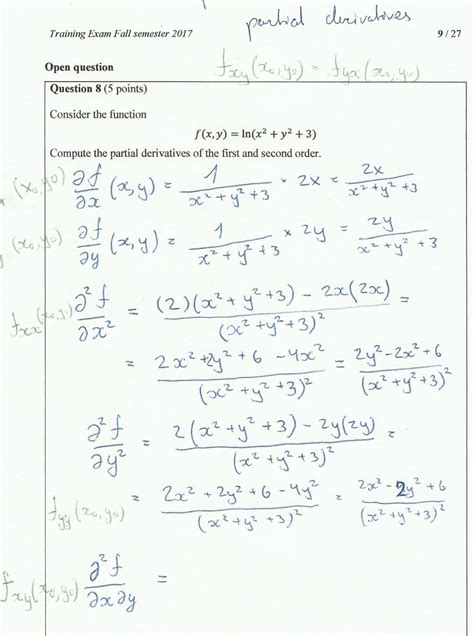 partial derivatives
Training Exam Fall semester 2017 9 / 27
f_xy(x₀,y₀) = f_yx(x₀,y₀)
Open question
Question 8 (5 points)
Consider the function
f(x, y) = ln(x² + y² + 3)
Compute the partial derivatives of the first and second order.
(x₀,y₀) ∂f/∂x (x,y) = 1/(x² + y² + 3) × 2x = 2x/(x² + y² + 3)
(x₀,y₀) ∂f/∂y (x,y) = 1/(x² + y² + 3) × 2y = 2y/(x² + y² + 3)
f_xx(x₀,y₀) ∂²f/∂x² = ((2)(x² + y² + 3) - 2x(2x))/(x² + y² + 3)² =
= (2x² + 2y² + 6 - 4x²)/(x² + y² + 3)² = (2y² - 2x² + 6)/(x² + y² + 3)²
∂²f/∂y² = (2(x² + y² + 3) - 2y(2y))/(x² + y² + 3)² =
f_yy(x₀,y₀) = (2x² + 2y² + 6 - 4y²)/(x² + y² + 3)² = (2x² - 2y² + 6)/(x² + y² + 3)²
f_xy(x₀,y₀) ∂²f/∂x∂y =